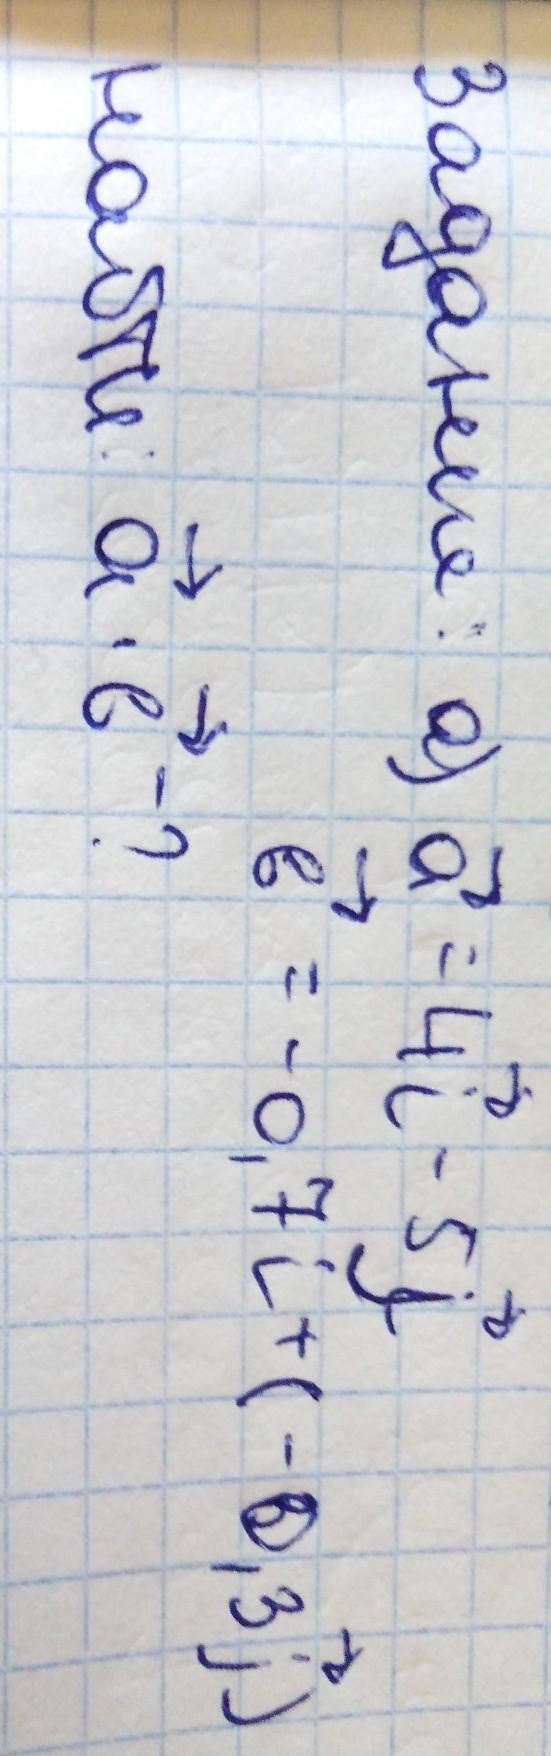 Задание: а) a⃗ = 4i⃗ - 5j⃗
в⃗ = -0,7i + (-0,3j⃗)
найти: a⃗ · в⃗ - ?